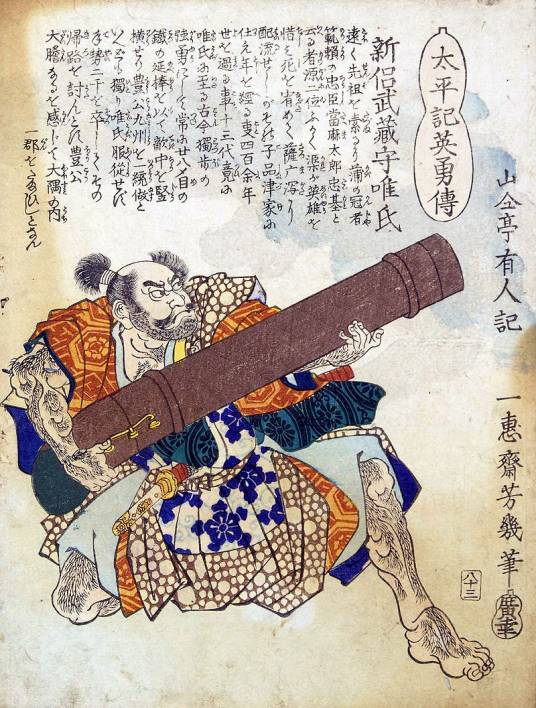 太平記英勇傳
山仝亭有人記
一惠齋芳幾筆
八十三
新侶武蔵守唯氏
遠く先祖を索るに蒲の冠者
範頼の忠臣當麻太郎忠基と
云る者源二位ふかく渠が英雄を
惜み死を宥めて薩广潟に
配流せしがその子品津家に
仕え年を經る事四百余年
世を過る事十三代竟に
唯氏に至る古今獨歩の
強勇にして常に廿八目の
鐵の延棒を以て敵中を竪
横せり豊公九州を綏撫し
獨り唯氏服従せず
手勢三十を卒しその
帰路を討んとす豊公
大膽なるを感じて大隅の内
一郡をたまひしとなん